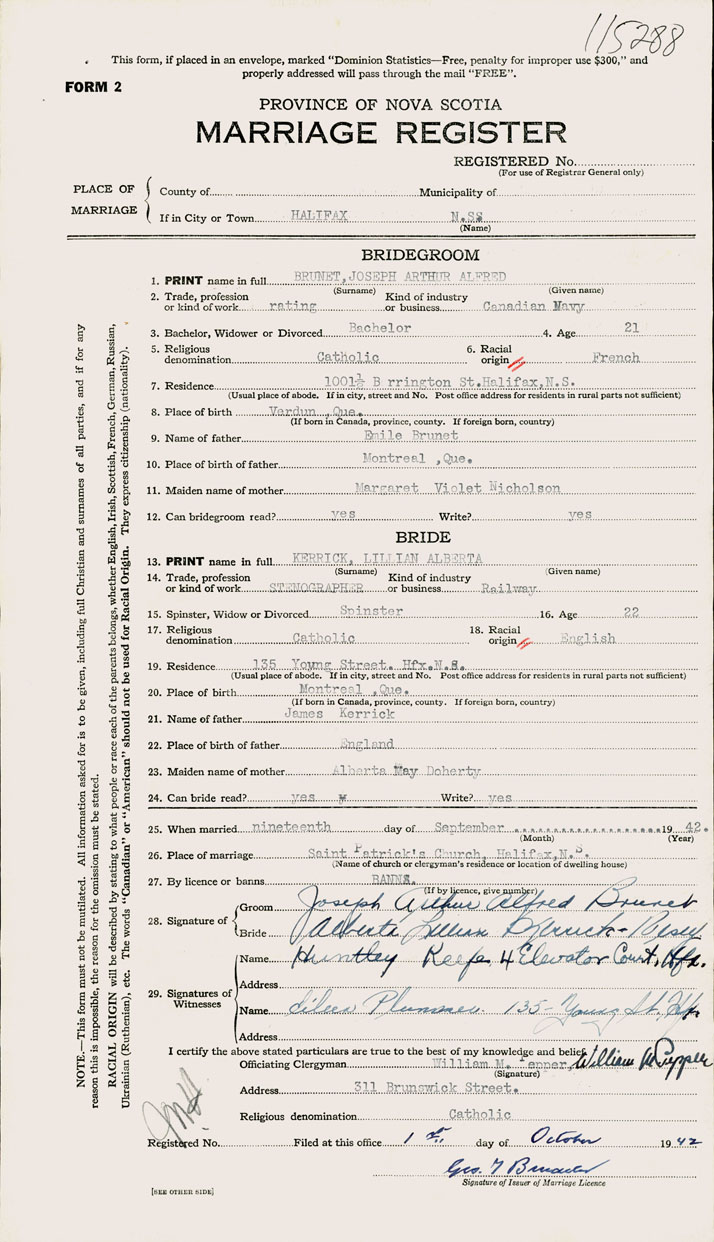 115288
This form, if placed in an envelope, marked "Dominion Statistics—Free, penalty for improper use $300," and
properly addressed will pass through the mail "FREE".
FORM 2
PROVINCE OF NOVA SCOTIA
MARRIAGE REGISTER
REGISTERED No.
(For use of Registrar General only)
PLACE OF MARRIAGE
County of Municipality of
If in City or Town HALIFAX N.SS
(Name)
BRIDEGROOM
1. PRINT name in full BRUNET,JOSEPH ARTHUR ALFRED
(Surname) (Given name)
2. Trade, profession or kind of work rating Kind of industry or business Canadian Navy
3. Bachelor, Widower or Divorced Bachelor 4. Age 21
5. Religious denomination Catholic 6. Racial origin French
7. Residence 1001½ B rrington St.Halifax,N.S.
(Usual place of abode. If in city, street and No. Post office address for residents in rural parts not sufficient)
8. Place of birth Verdun ,Que.
(If born in Canada, province, county. If foreign born, country)
9. Name of father Emile Brunet
10. Place of birth of father Montreal ,Que.
11. Maiden name of mother Margaret Violet Nicholson
12. Can bridegroom read? yes Write? yes
BRIDE
13. PRINT name in full KERRICK, LILLIAN ALBERTA
(Surname) (Given name)
14. Trade, profession or kind of work STENOGRAPHER Kind of industry or business Railway
15. Spinster, Widow or Divorced Spinster 16. Age 22
17. Religious denomination Catholic 18. Racial origin English
19. Residence 135 Young Street. Hfx.N.S.
(Usual place of abode. If in city, street and No. Post office address for residents in rural parts not sufficient)
20. Place of birth Montreal ,Que.
(If born in Canada, province, county. If foreign born, country)
21. Name of father James Kerrick
22. Place of birth of father England
23. Maiden name of mother Alberta May Doherty
24. Can bride read? yes w Write? yes
25. When married nineteenth day of September 1942.
(Month) (Year)
26. Place of marriage Saint Patrick's Church, Halifax,N.S.
(Name of church or clergyman's residence or location of dwelling house)
27. By licence or banns BANNS.
(If by licence, give number)
28. Signature of
Groom Joseph Arthur Alfred Brunet
Bride Alberta Lillian
29. Signatures of Witnesses
Name Huntley Keefe 4 Elevator Court, Hfx.
Address
Name Eileen Plummer 135 Young St. Hfx.
Address
I certify the above stated particulars are true to the best of my knowledge and belief.
Officiating Clergyman William M. Pepper, William M Pepper
(Signature)
Address 311 Brunswick Street.
Religious denomination Catholic
Registered No. Filed at this office 1st. day of October 1942
Geo. T
Signature of Issuer of Marriage Licence
[SEE OTHER SIDE]
NOTE.—This form must not be mutilated. All information asked for is to be given, including full Christian and surnames of all parties, and if for any
reason this is impossible, the reason for the omission must be stated.
RACIAL ORIGIN will be described by stating to what people or race each of the parents belongs, whether English, Irish, Scottish, French, German, Russian,
Ukrainian (Ruthenian), etc. The words "Canadian" or "American" should not be used for Racial Origin. They express citizenship (nationality).